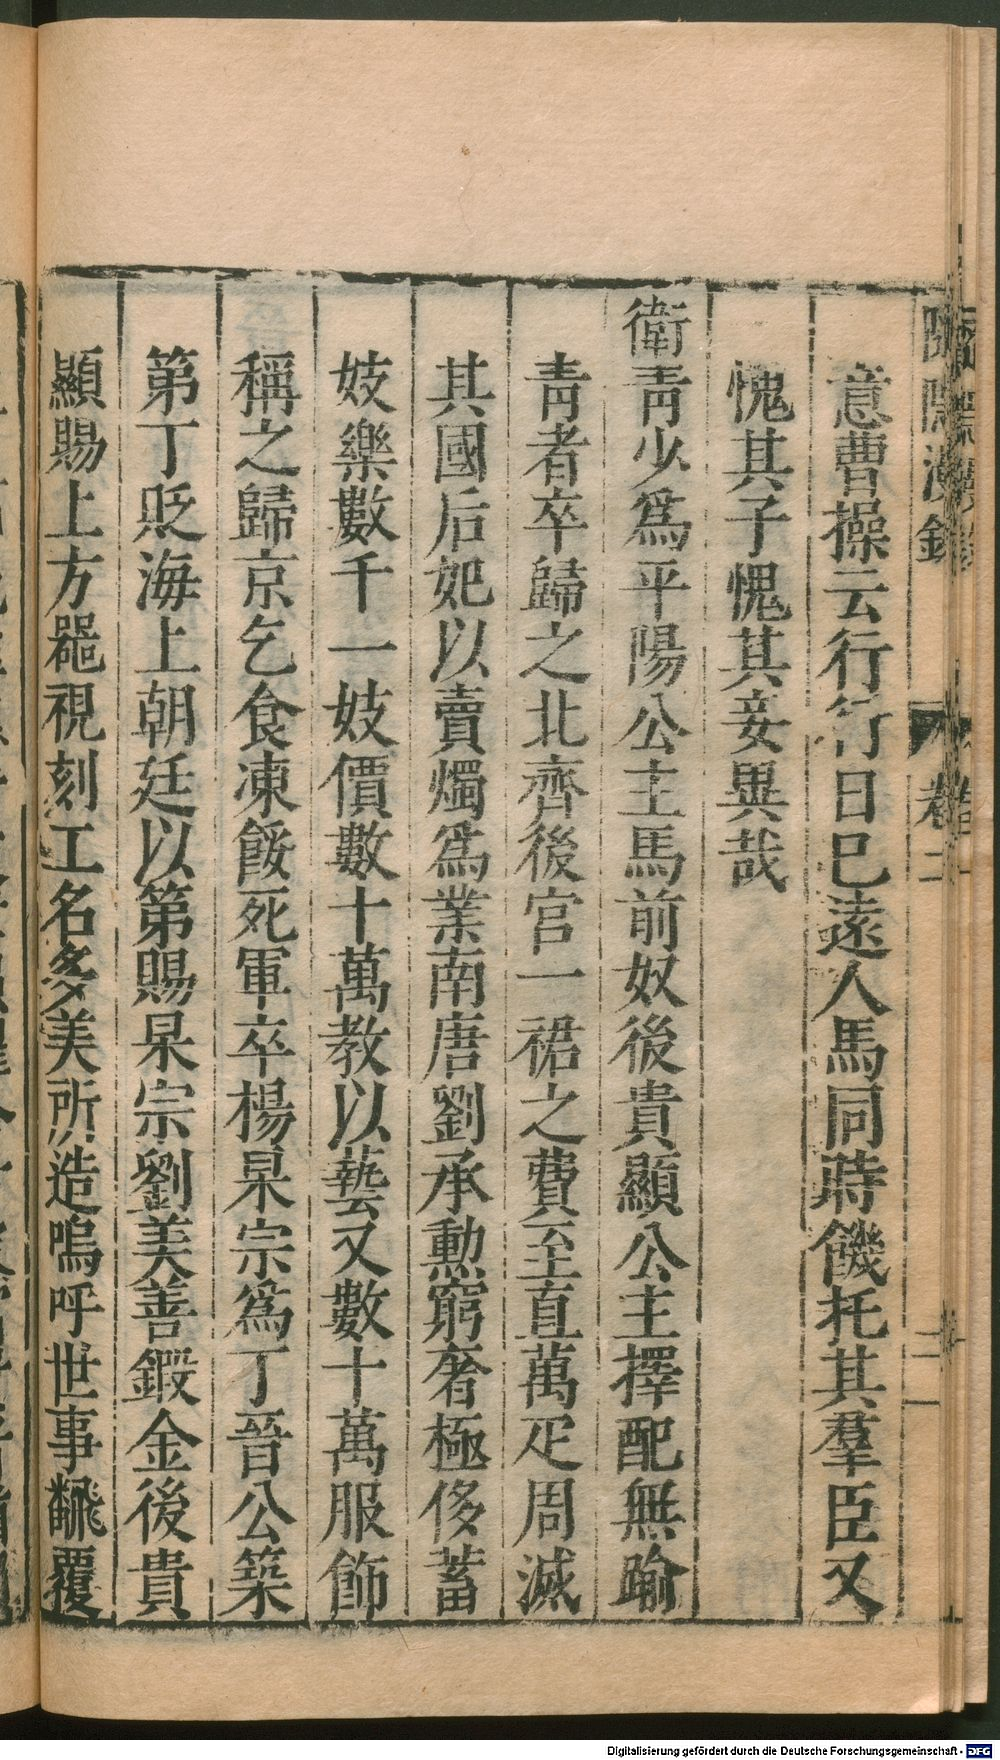 意曹操云行行日已遠人馬同時饑托其羣臣又
愧其子愧其妾異哉
衛靑少爲平陽公主馬前奴後貴顯公主擇配無踰
靑者卒歸之北齊後宮一裙之費至直萬疋周滅
其國后妃以賣燭爲業南唐劉承勳窮奢極侈蓄
妓樂數千一妓價數十萬教以藝又數十萬服飾
稱之歸京乞食凍餒死軍卒楊杲宗爲丁晉公築
第丁貶海上朝廷以第賜杲宗劉美善鍜金後貴
顯賜上方噐視刻工名多美所造嗚呼世事飜覆
卷二
Digitalisierung gefördert durch die Deutsche Forschungsgemeinschaft - DFG